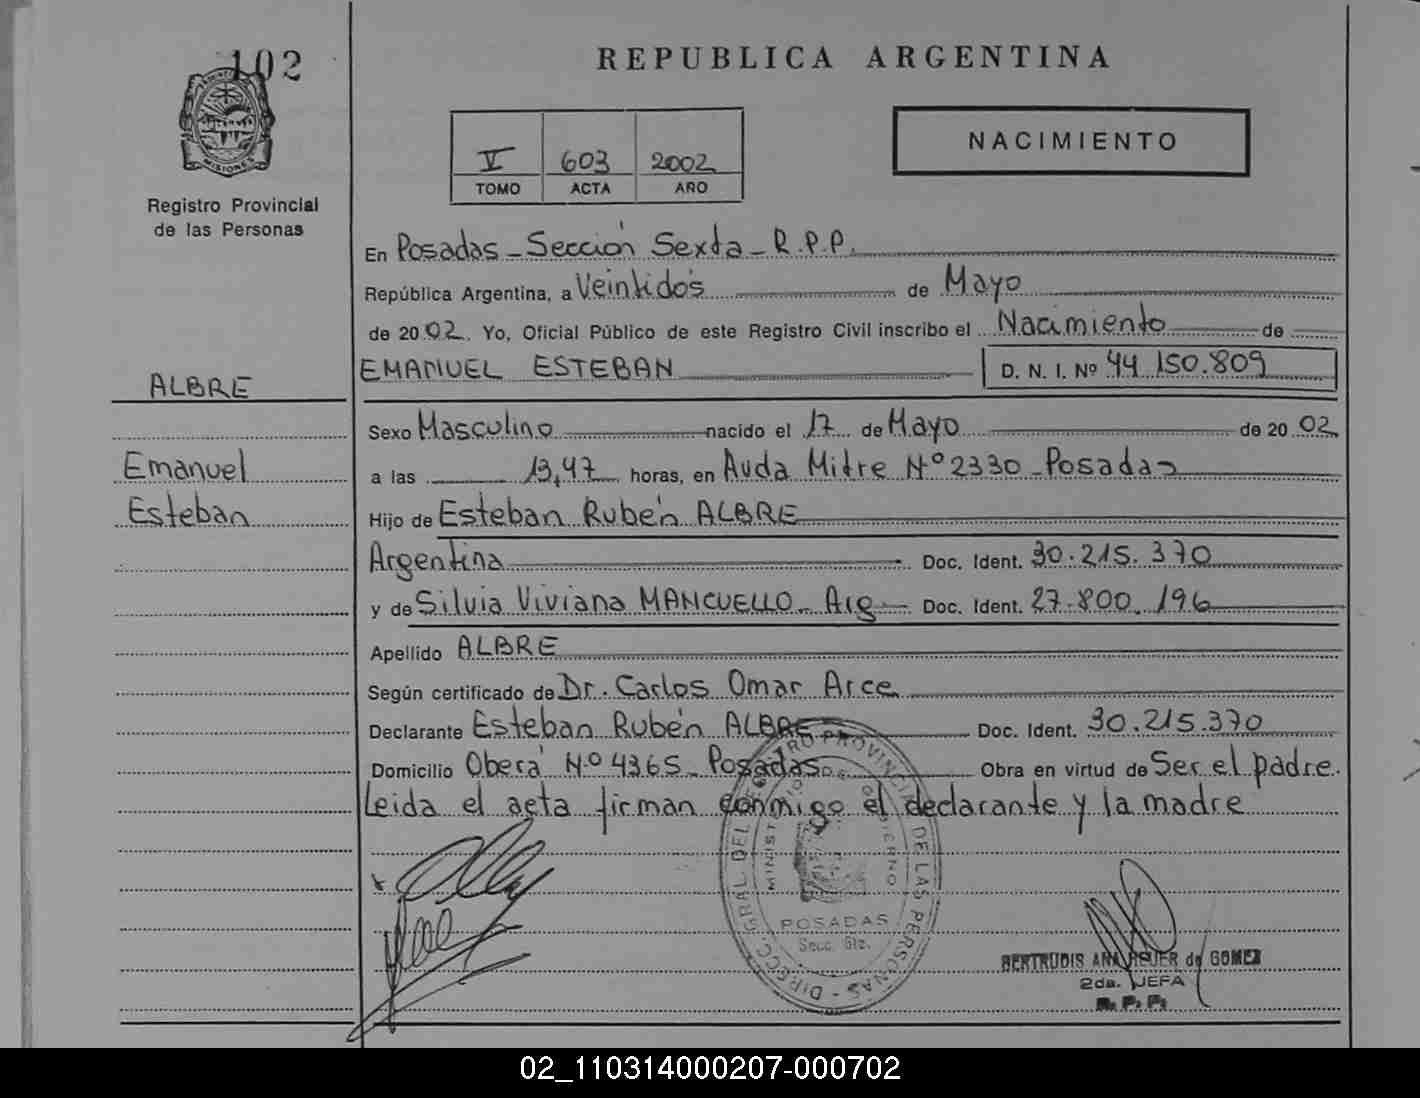 102
MISIONES
Registro Provincial
de las Personas
ALBRE
Emanuel
Esteban
REPUBLICA ARGENTINA
V 603 2002
TOMO ACTA AÑO
NACIMIENTO
En Posadas - Sección Sexta - R.P.P.
República Argentina, a Veintidós de Mayo
de 2002. Yo, Oficial Público de este Registro Civil inscribo el Nacimiento de
EMANUEL ESTEBAN D. N. I. Nº 44.150.809
Sexo Masculino nacido el 17 de Mayo de 2002
a las 13,47 horas, en Avda Mitre Nº 2330 - Posadas
Hijo de Esteban Rubén ALBRE
Argentina Doc. Ident. 30.215.370
y de Silvia Viviana MANCUELLO - Arg - Doc. Ident. 27.800.196
Apellido ALBRE
Según certificado de Dr. Carlos Omar Arce
Declarante Esteban Rubén ALBRE Doc. Ident. 30.215.370
Domicilio Oberá Nº 4365 - Posadas Obra en virtud de Ser el padre.
Leida el acta firman conmigo el declarante y la madre
DIRECC. GRAL. DEL REGISTRO PROVINCIAL DE LAS PERSONAS
MINISTERIO DE GOBIERNO
POSADAS
Secc. 6ta.
GERTRUDIS ANA de GOMEZ
2da. JEFA
R. P. P.
02_110314000207-000702